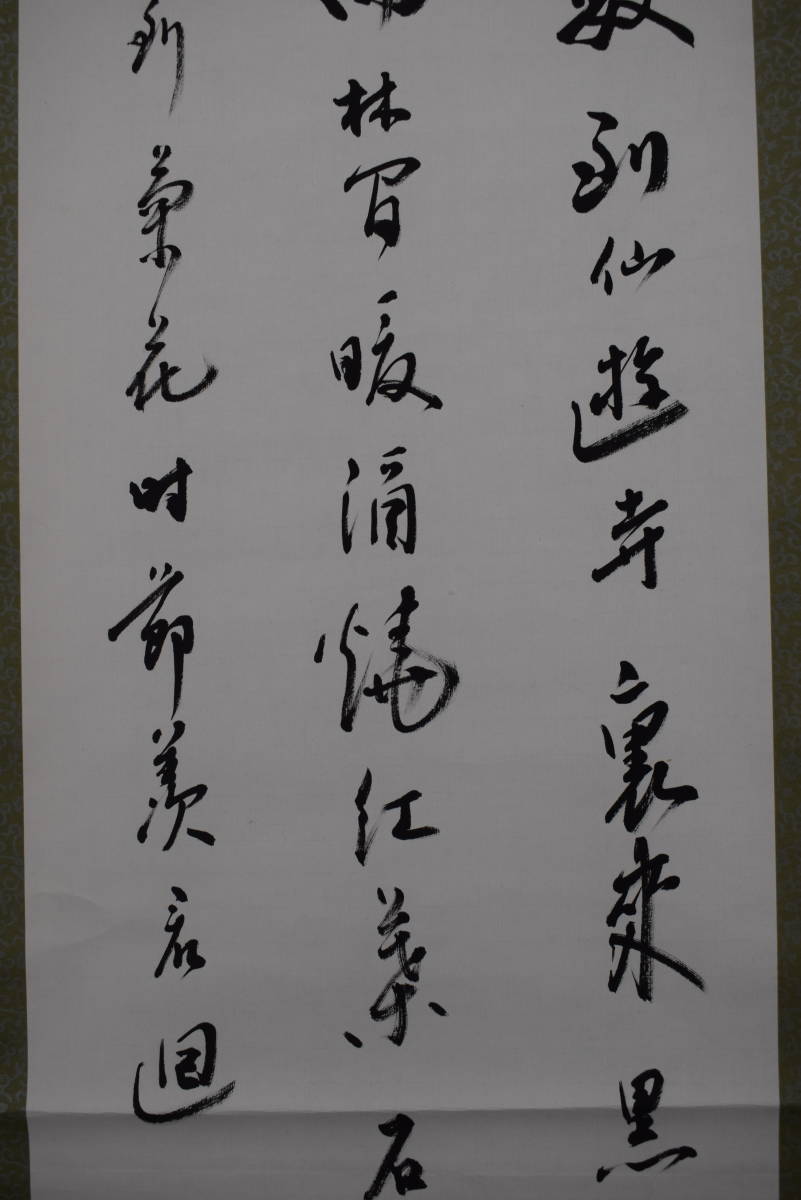 到仙遊寺裏來黑
林間暖酒燒紅葉石
到菊花時節羨君迴